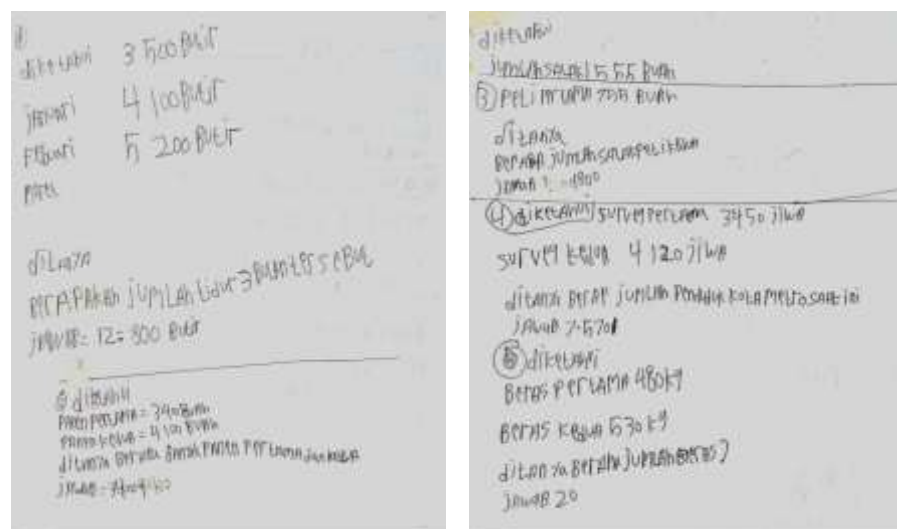 diketahui 3 500 Butir
januari 4 100 Butir
Febuari 5 200 Butir
Maret
ditanya
BerAPAKah jumlah tidur 3 Bulan tersebut
jawab = 12 = 800 Butir
diketahui
Panen Pertama = 340 Buah
Panen kedua = 4 100 Buah
ditanya Berapa Panen Pertama dan kedua
jawab =
diketahui
jumlah salak 1 555 Buah
③ Peti Pertama 755 Buah
ditanya
Berapa jumlah salak Peti kedua
jawab : = 1800
④ diketahui survei pertama 3450 jiwa
survei kedua 4 120 jiwa
ditanya Berap jumlah Penduduk Kota Metro saat ini
jawab 7.570
⑤ diketahui
Beras Pertama 480 kg
Beras kedua 530 kg
ditanya Berapa jumlah Beras ?
jawab 20